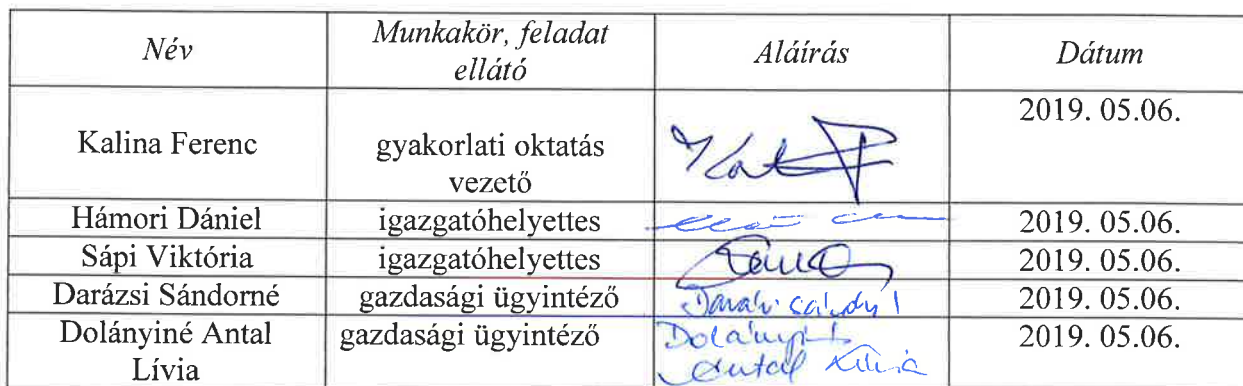 Név Munkakör, feladat ellátó Aláírás Dátum
Kalina Ferenc gyakorlati oktatás vezető 2019. 05.06.
Hámori Dániel igazgatóhelyettes 2019. 05.06.
Sápi Viktória igazgatóhelyettes 2019. 05.06.
Darázsi Sándorné gazdasági ügyintéző 2019. 05.06.
Dolányiné Antal Lívia gazdasági ügyintéző Dolányiné Antal Lívia 2019. 05.06.